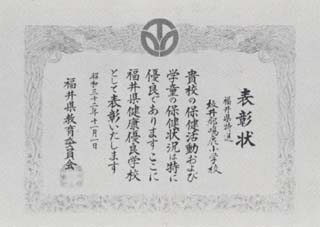 表彰状
福井県特選
坂井郡鳴鹿小学校
貴校の保健活動および
学童の保健状況は特に
優良であります ここに
福井県健康優良学校
として表彰いたします
昭和三十二年十一月一日
福井県教育委員会